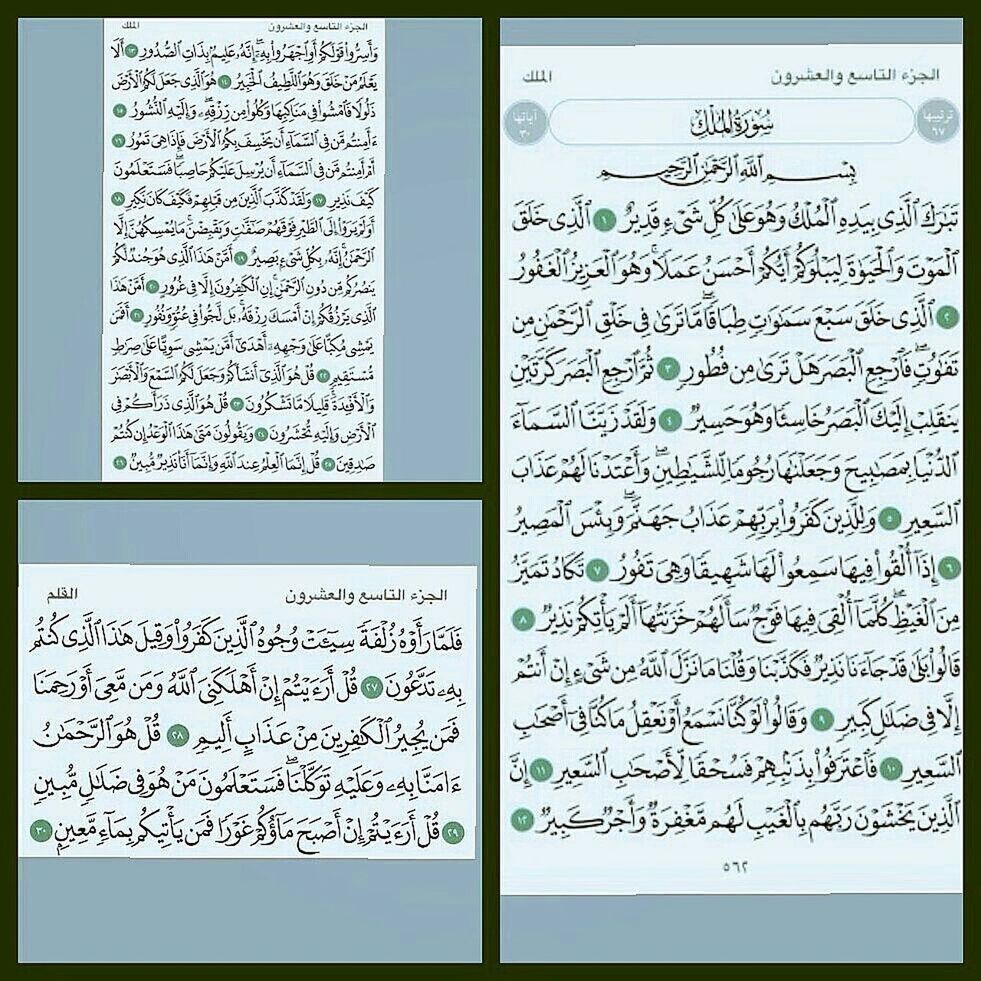 الجزء التاسع والعشرون
الملك
ترتيبها
٦٧
سُورَةُ المُلْكِ
آياتها
٣٠
بِسْمِ اللَّهِ الرَّحْمَٰنِ الرَّحِيمِ
تَبَٰرَكَ ٱلَّذِى بِيَدِهِ ٱلْمُلْكُ وَهُوَ عَلَىٰ كُلِّ شَىْءٍ قَدِيرٌ ١ ٱلَّذِى خَلَقَ
ٱلْمَوْتَ وَٱلْحَيَوٰةَ لِيَبْلُوَكُمْ أَيُّكُمْ أَحْسَنُ عَمَلًا ۚ وَهُوَ ٱلْعَزِيزُ ٱلْغَفُورُ
٢ ٱلَّذِى خَلَقَ سَبْعَ سَمَٰوَٰتٍ طِبَاقًا ۖ مَّا تَرَىٰ فِى خَلْقِ ٱلرَّحْمَٰنِ مِن
تَفَٰوُتٍ ۖ فَٱرْجِعِ ٱلْبَصَرَ هَلْ تَرَىٰ مِن فُطُورٍ ٣ ثُمَّ ٱرْجِعِ ٱلْبَصَرَ كَرَّتَيْنِ
يَنقَلِبْ إِلَيْكَ ٱلْبَصَرُ خَاسِئًا وَهُوَ حَسِيرٌ ٤ وَلَقَدْ زَيَّنَّا ٱلسَّمَآءَ
ٱلدُّنْيَا بِمَصَٰبِيحَ وَجَعَلْنَٰهَا رُجُومًا لِّلشَّيَٰطِينِ ۖ وَأَعْتَدْنَا لَهُمْ عَذَابَ
ٱلسَّعِيرِ ٥ وَلِلَّذِينَ كَفَرُوا۟ بِرَبِّهِمْ عَذَابُ جَهَنَّمَ ۖ وَبِئْسَ ٱلْمَصِيرُ
٦ إِذَآ أُلْقُوا۟ فِيهَا سَمِعُوا۟ لَهَا شَهِيقًا وَهِىَ تَفُورُ ٧ تَكَادُ تَمَيَّزُ
مِنَ ٱلْغَيْظِ ۖ كُلَّمَآ أُلْقِىَ فِيهَا فَوْجٌ سَأَلَهُمْ خَزَنَتُهَآ أَلَمْ يَأْتِكُمْ نَذِيرٌ ٨
قَالُوا۟ بَلَىٰ قَدْ جَآءَنَا نَذِيرٌ فَكَذَّبْنَا وَقُلْنَا مَا نَزَّلَ ٱللَّهُ مِن شَىْءٍ إِنْ أَنتُمْ
إِلَّا فِى ضَلَٰلٍ كَبِيرٍ ٩ وَقَالُوا۟ لَوْ كُنَّا نَسْمَعُ أَوْ نَعْقِلُ مَا كُنَّا فِىٓ أَصْحَٰبِ
ٱلسَّعِيرِ ١٠ فَٱعْتَرَفُوا۟ بِذَنۢبِهِمْ فَسُحْقًا لِّأَصْحَٰبِ ٱلسَّعِيرِ ١١ إِنَّ
ٱلَّذِينَ يَخْشَوْنَ رَبَّهُم بِٱلْغَيْبِ لَهُم مَّغْفِرَةٌ وَأَجْرٌ كَبِيرٌ ١٢
٥٦٢
الجزء التاسع والعشرون
الملك
وَأَسِرُّوا۟ قَوْلَكُمْ أَوِ ٱجْهَرُوا۟ بِهِۦٓ ۖ إِنَّهُۥ عَلِيمٌۢ بِذَاتِ ٱلصُّدُورِ ١٣ أَلَا
يَعْلَمُ مَنْ خَلَقَ وَهُوَ ٱللَّطِيفُ ٱلْخَبِيرُ ١٤ هُوَ ٱلَّذِى جَعَلَ لَكُمُ ٱلْأَرْضَ
ذَلُولًا فَٱمْشُوا۟ فِى مَنَاكِبِهَا وَكُلُوا۟ مِن رِّزْقِهِۦ ۖ وَإِلَيْهِ ٱلنُّشُورُ ١٥
ءَأَمِنتُم مَّن فِى ٱلسَّمَآءِ أَن يَخْسِفَ بِكُمُ ٱلْأَرْضَ فَإِذَا هِىَ تَمُورُ ١٦
أَمْ أَمِنتُم مَّن فِى ٱلسَّمَآءِ أَن يُرْسِلَ عَلَيْكُمْ حَاصِبًا ۖ فَسَتَعْلَمُونَ
كَيْفَ نَذِيرِ ١٧ وَلَقَدْ كَذَّبَ ٱلَّذِينَ مِن قَبْلِهِمْ فَكَيْفَ كَانَ نَكِيرِ ١٨
أَوَلَمْ يَرَوْا۟ إِلَى ٱلطَّيْرِ فَوْقَهُمْ صَٰٓفَّٰتٍ وَيَقْبِضْنَ ۚ مَا يُمْسِكُهُنَّ إِلَّا
ٱلرَّحْمَٰنُ ۚ إِنَّهُۥ بِكُلِّ شَىْءٍۭ بَصِيرٌ ١٩ أَمَّنْ هَٰذَا ٱلَّذِى هُوَ جُندٌ لَّكُمْ
يَنصُرُكُم مِّن دُونِ ٱلرَّحْمَٰنِ ۚ إِنِ ٱلْكَٰفِرُونَ إِلَّا فِى غُرُورٍ ٢٠ أَمَّنْ هَٰذَا
ٱلَّذِى يَرْزُقُكُمْ إِنْ أَمْسَكَ رِزْقَهُۥ ۚ بَل لَّجُّوا۟ فِى عُتُوٍّ وَنُفُورٍ ٢١ أَفَمَن
يَمْشِى مُكِبًّا عَلَىٰ وَجْهِهِۦٓ أَهْدَىٰٓ أَمَّن يَمْشِى سَوِيًّا عَلَىٰ صِرَٰطٍ
مُّسْتَقِيمٍ ٢٢ قُلْ هُوَ ٱلَّذِىٓ أَنشَأَكُمْ وَجَعَلَ لَكُمُ ٱلسَّمْعَ وَٱلْأَبْصَٰرَ
وَٱلْأَفْـِٔدَةَ ۖ قَلِيلًا مَّا تَشْكُرُونَ ٢٣ قُلْ هُوَ ٱلَّذِى ذَرَأَكُمْ فِى
ٱلْأَرْضِ وَإِلَيْهِ تُحْشَرُونَ ٢٤ وَيَقُولُونَ مَتَىٰ هَٰذَا ٱلْوَعْدُ إِن كُنتُمْ
صَٰدِقِينَ ٢٥ قُلْ إِنَّمَا ٱلْعِلْمُ عِندَ ٱللَّهِ وَإِنَّمَآ أَنَا۠ نَذِيرٌ مُّبِينٌ ٢٦
الجزء التاسع والعشرون
القلم
فَلَمَّا رَأَوْهُ زُلْفَةً سِيٓـَٔتْ وُجُوهُ ٱلَّذِينَ كَفَرُوا۟ وَقِيلَ هَٰذَا ٱلَّذِى كُنتُم
بِهِۦ تَدَّعُونَ ٢٧ قُلْ أَرَءَيْتُمْ إِنْ أَهْلَكَنِىَ ٱللَّهُ وَمَن مَّعِىَ أَوْ رَحِمَنَا
فَمَن يُجِيرُ ٱلْكَٰفِرِينَ مِنْ عَذَابٍ أَلِيمٍ ٢٨ قُلْ هُوَ ٱلرَّحْمَٰنُ
ءَامَنَّا بِهِۦ وَعَلَيْهِ تَوَكَّلْنَا ۖ فَسَتَعْلَمُونَ مَنْ هُوَ فِى ضَلَٰلٍ مُّبِينٍ
٢٩ قُلْ أَرَءَيْتُمْ إِنْ أَصْبَحَ مَآؤُكُمْ غَوْرًا فَمَن يَأْتِيكُم بِمَآءٍ مَّعِينٍۭ ٣٠